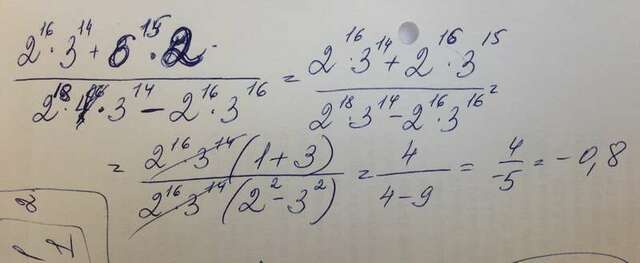 (2^16 · 3^14 + 6^15 · 2) / (2^18 · 3^14 − 2^16 · 3^16) = (2^16 · 3^14 + 2^16 · 3^15) / (2^18 · 3^14 − 2^16 · 3^16) =
= (2^16 · 3^14 (1 + 3)) / (2^16 · 3^14 (2^2 − 3^2)) = 4 / (4 − 9) = 4 / −5 = −0,8